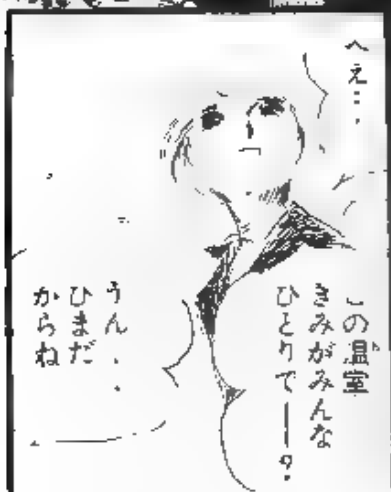 へえ…
この温室
きみがみんな
ひとりで――?
うん・・
ひまだ
からね